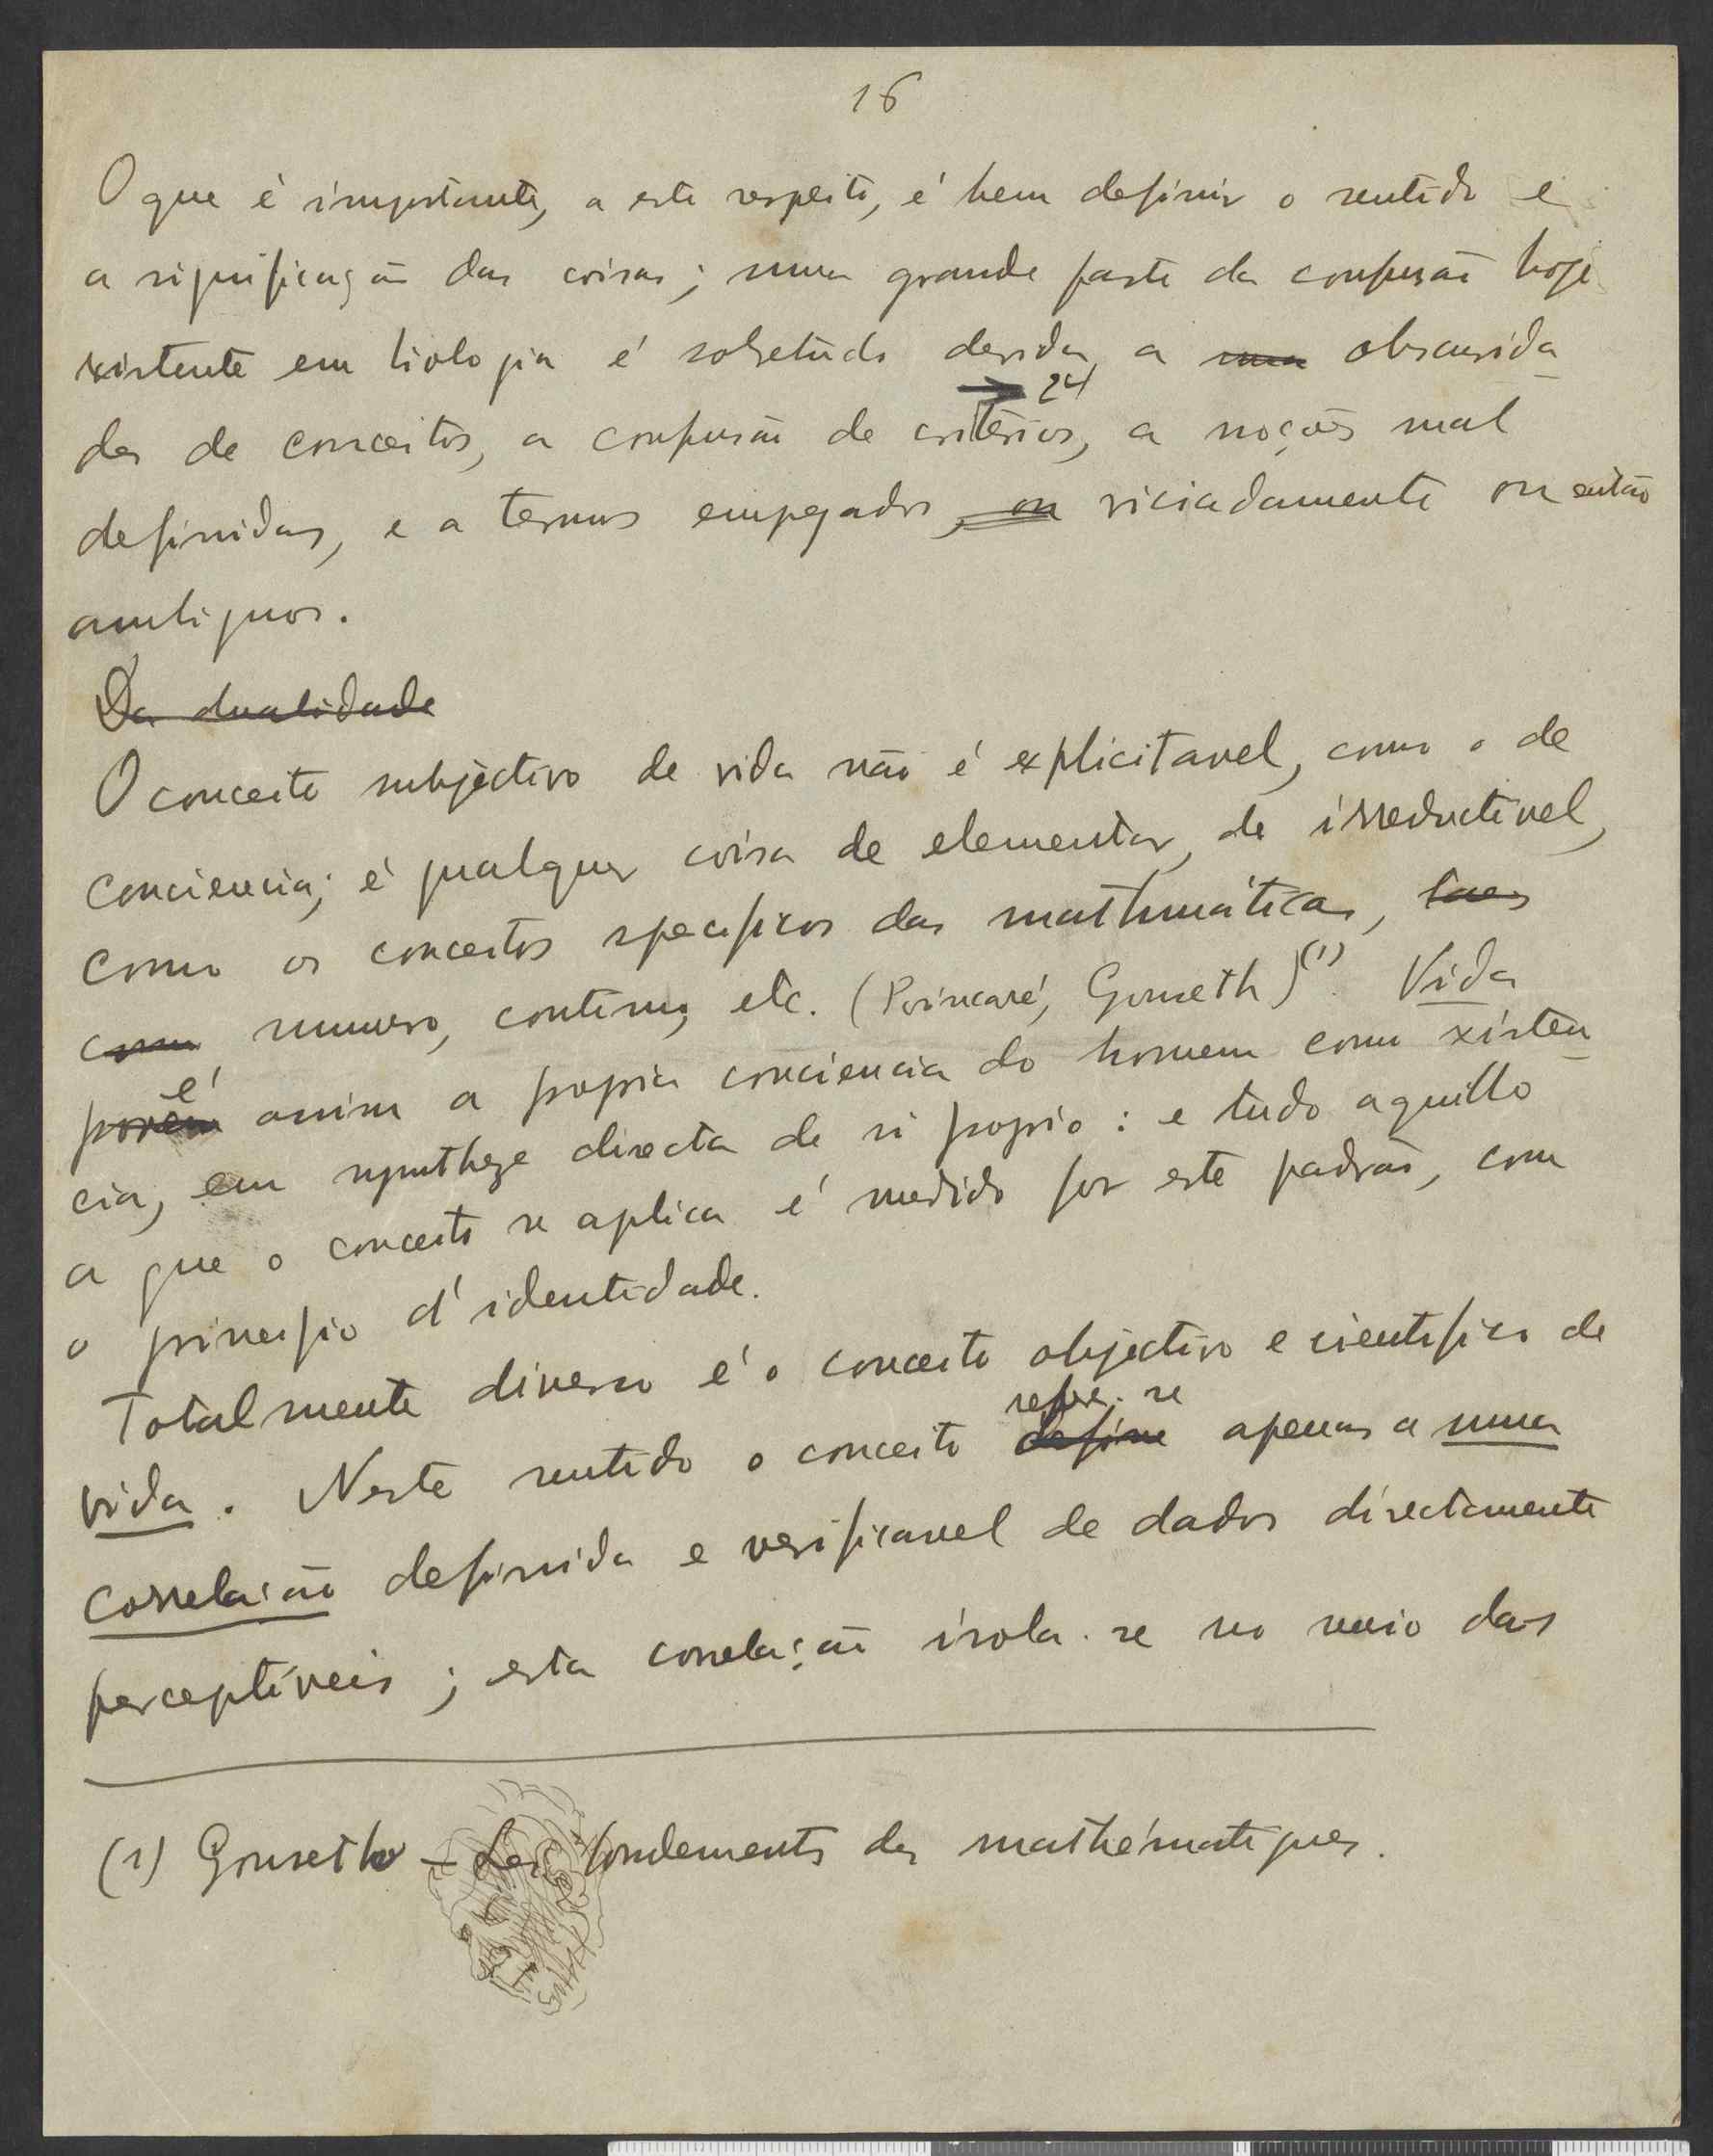 16
O que é importante, a este respeito, é bem definir o sentido e
a significação das coisas; uma grande parte da confusão hoje
existente em biologia é sobretudo devida, a uma obscurida-
→ 24
des de conceitos, a confusão de critérios, a noções mal
definidas, e a termos empegados, ou viciadamente ou então
ambiguos.
Da dualidade
O conceito subjectivo de vida não é explicitavel, como o de
conciencia; é qualquer coisa de elementar, de irreductivel,
como os conceitos specificos das mathmáticas, taes
como numero, continuo, etc. (Poincaré, Gonseth)(1). Vida
é
porém assim a propria conciencia do homem como existen-
cia, em synthese directa de si proprio: e tudo aquillo
a que o conceito se aplica é medido por este padrão, com
o principio d'identidade.
Totalmente diverso é o conceito objectivo e cientifico de
refere-se
vida. Neste sentido o conceito define apenas a uma
correlação definida e verificavel de dados directamente
perceptíveis; esta correlação isola-se no meio das
(1) Gonseth – Les fondements des mathématiques.